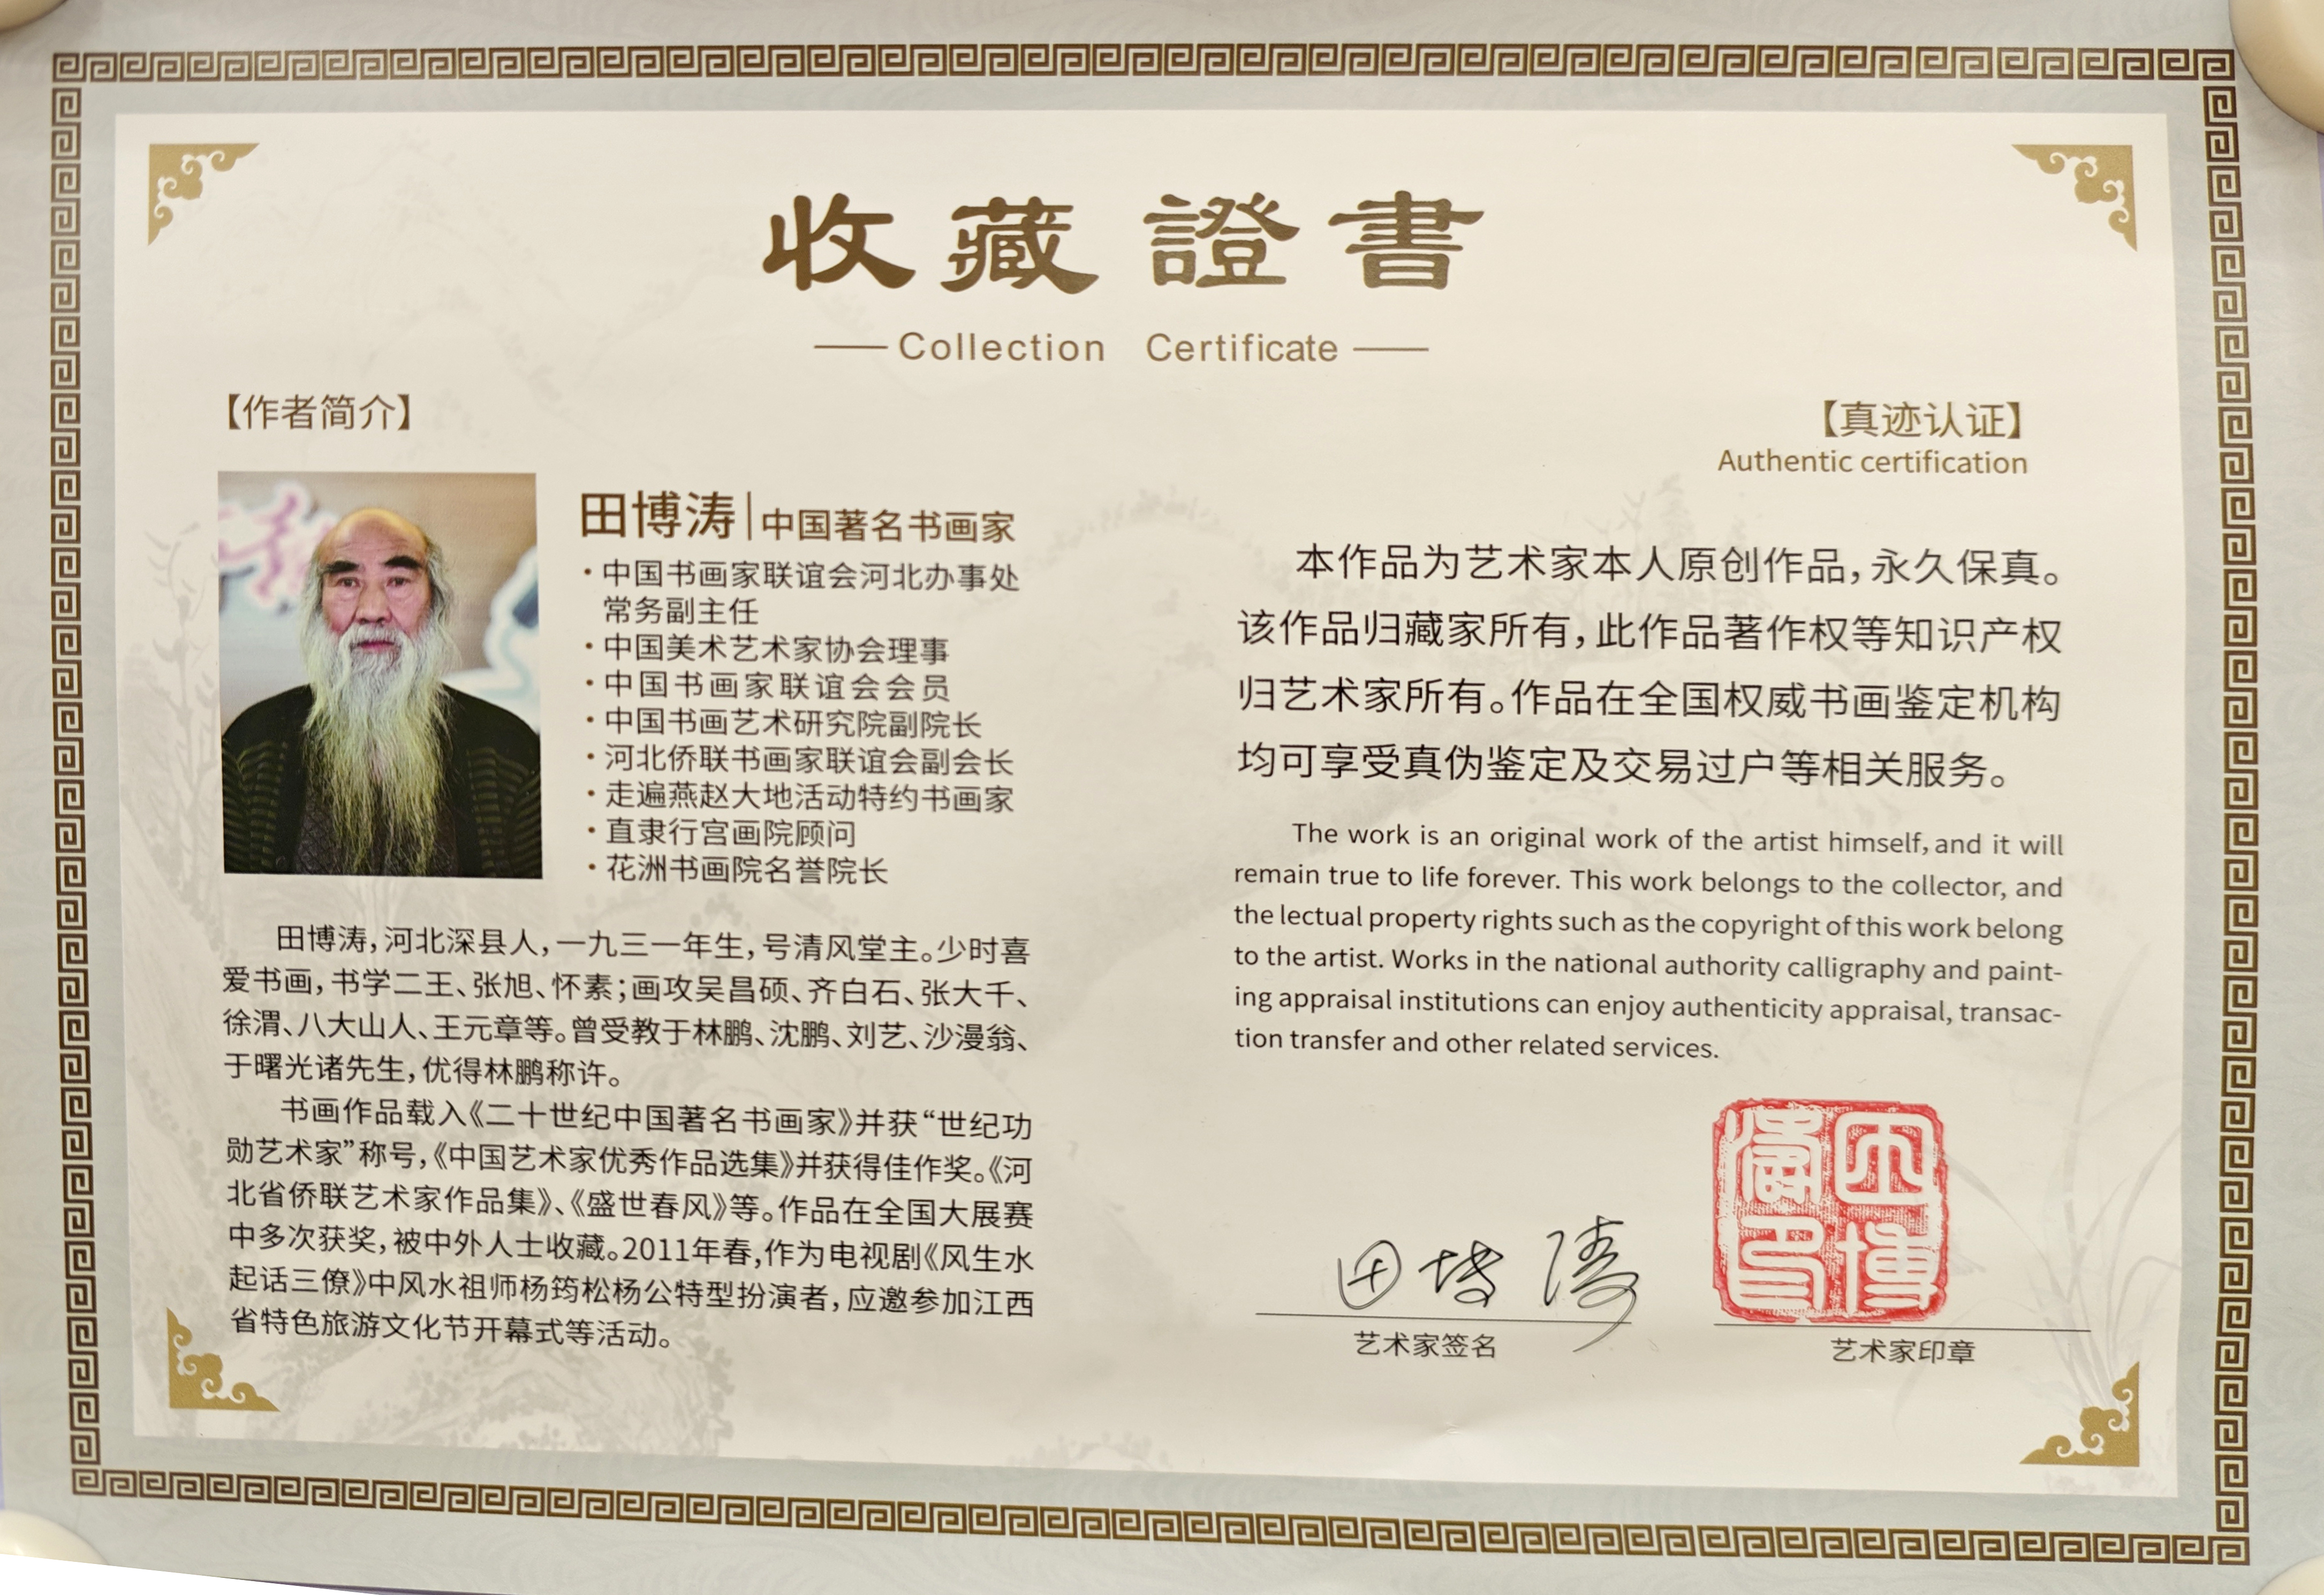 收藏證書
Collection Certificate
【作者简介】
田博涛|中国著名书画家
·中国书画家联谊会河北办事处
常务副主任
·中国美术艺术家协会理事
·中国书画家联谊会会员
·中国书画艺术研究院副院长
·河北侨联书画家联谊会副会长
·走遍燕赵大地活动特约书画家
·直隶行宫画院顾问
·花洲书画院名誉院长
田博涛,河北深县人,一九三一年生,号清风堂主。少时喜
爱书画,书学二王、张旭、怀素;画攻吴昌硕、齐白石、张大千、
徐渭、八大山人、王元章等。曾受教于林鹏、沈鹏、刘艺、沙漫翁、
于曙光诸先生,优得林鹏称许。
书画作品载入《二十世纪中国著名书画家》并获“世纪功
勋艺术家”称号,《中国艺术家优秀作品选集》并获得佳作奖。《河
北省侨联艺术家作品集》、《盛世春风》等。作品在全国大展赛
中多次获奖,被中外人士收藏。2011年春,作为电视剧《风生水
起话三僚》中风水祖师杨筠松杨公特型扮演者,应邀参加江西
省特色旅游文化节开幕式等活动。
【真迹认证】
Authentic certification
本作品为艺术家本人原创作品,永久保真。
该作品归藏家所有,此作品著作权等知识产权
归艺术家所有。作品在全国权威书画鉴定机构
均可享受真伪鉴定及交易过户等相关服务。
The work is an original work of the artist himself, and it will
remain true to life forever. This work belongs to the collector, and
the lectual property rights such as the copyright of this work belong
to the artist. Works in the national authority calligraphy and paint-
ing appraisal institutions can enjoy authenticity appraisal, transac-
tion transfer and other related services.
田博涛
艺术家签名
田博涛印
艺术家印章